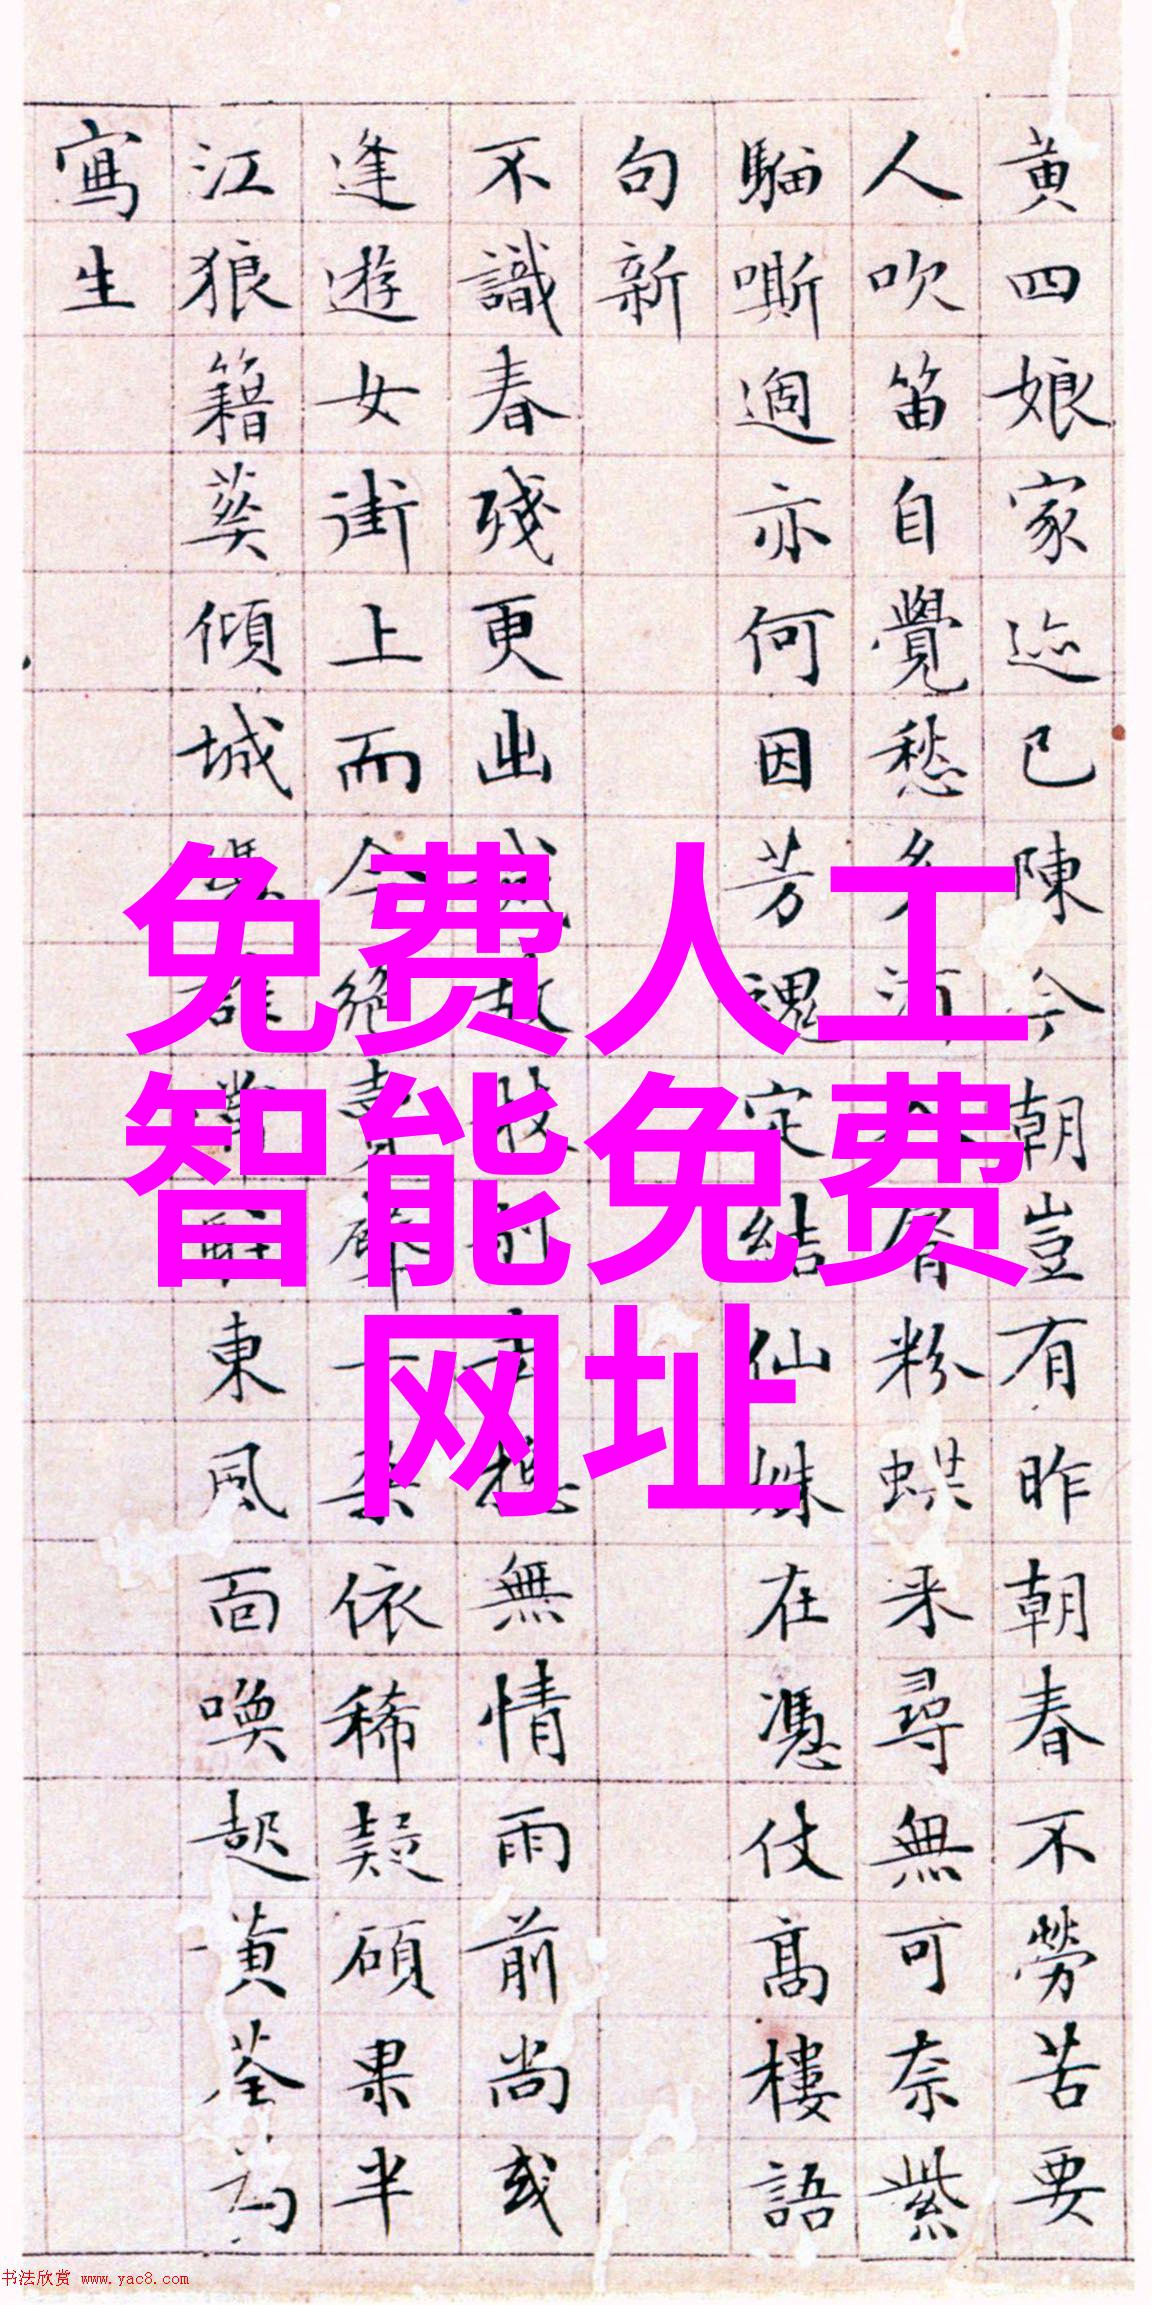 黄四娘家迹已陳今朝豈有昨朝春不勞苦要
人吹笛自覺愁多 粉蝶来尋無可奈紫
騮嘶過亦何因芳魂定結仙姝在憑仗高樓語
句新
不識春殘更出城故枝 無情雨前尚或
逢遊女街上而今絕賣 一朵依稀疑碩果半
江狼籍葵傾城 誰 東風面喚起黄荃為
寫生
免费人工
智能免费
网址
书法欣赏 www.yac8.com